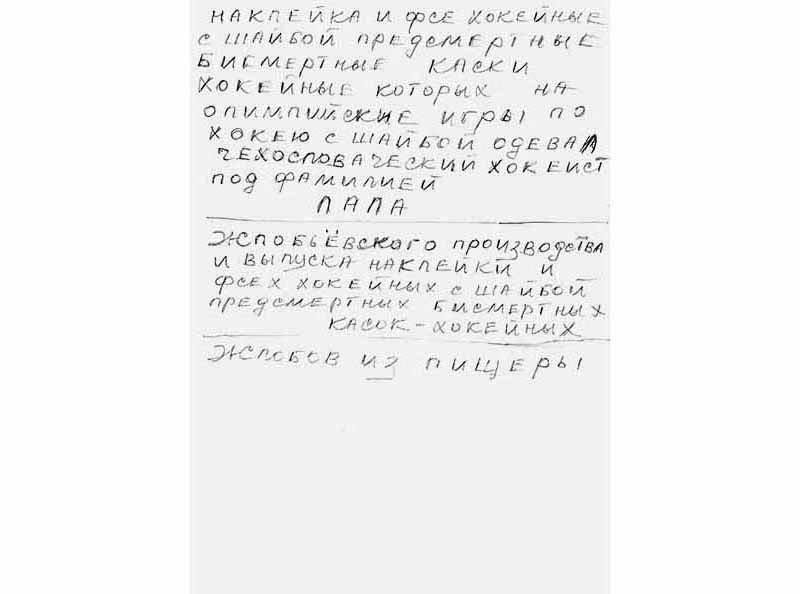 НАКЛЕЙКА И ФСЕ ХОКЕЙНЫЕ
С ШАЙБОЙ ПРЕДСМЕРТНЫЕ
БИСМЕРТНЫЕ КАСКИ
ХОКЕЙНЫЕ КОТОРЫХ НА
ОЛИМПИЙСКИЕ ИГРЫ ПО
ХОКЕЮ С ШАЙБОЙ ОДЕВАЛ
ЧЕХОСЛОВАЧЕСКИЙ ХОКЕИСТ
ПОД ФАМИЛИЕЙ
ЛАЛА
ЖЛОБЬЁВСКОГО ПРОИЗВОДСТВА
И ВЫПУСКА НАКЛЕЙКИ И
ФСЕХ ХОКЕЙНЫХ С ШАЙБОЙ
ПРЕДСМЕРТНЫХ БИСМЕРТНЫХ
КАСОК-ХОКЕЙНЫХ
ЖЛОБОВ ИЗ ПИЩЕРЫ